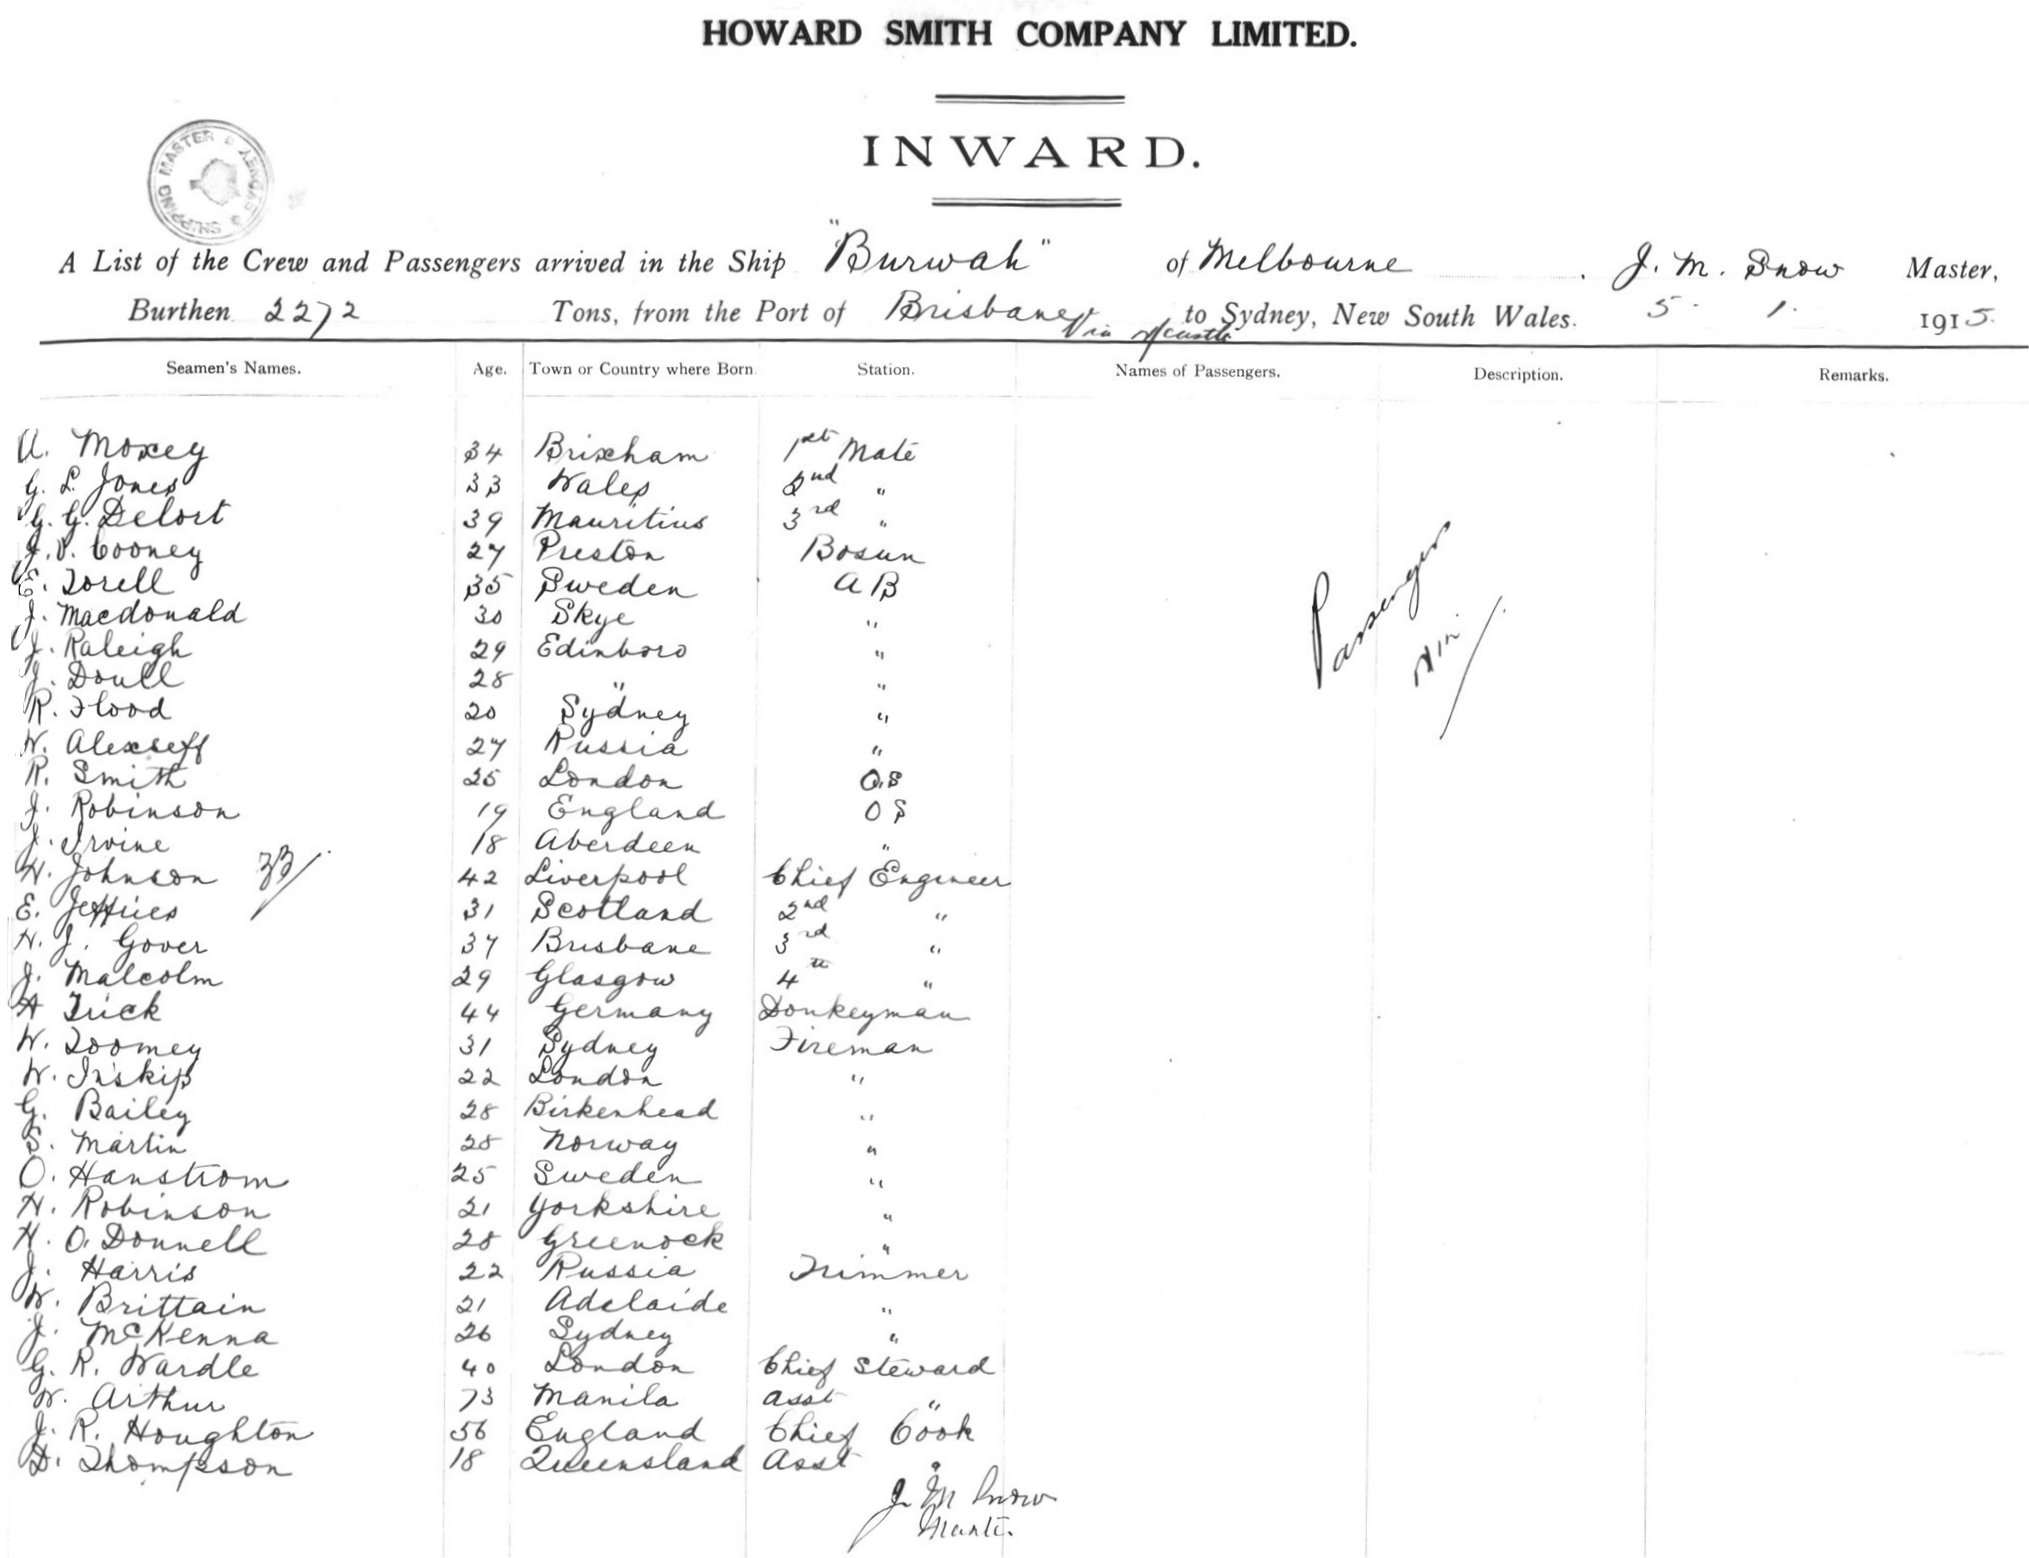 HOWARD SMITH COMPANY LIMITED.
INWARD.
SHIPPING MASTER SYDNEY
A List of the Crew and Passengers arrived in the Ship "Burwah" of Melbourne . J. M. Snow Master,
Burthen 2272 Tons, from the Port of Brisbane Via N'castle to Sydney, New South Wales. 5 . 1 . 1915.
Seamen's Names. Age. Town or Country where Born Station. Names of Passengers. Description. Remarks.
A. Moxey 34 Brixham 1st Mate
G. L. Jones 33 Wales 2nd "
G. G. Delort 39 Mauritius 3rd "
J. V. Cooney 27 Preston Bosun
E. Torell 35 Sweden A B
J. Macdonald 30 Skye "
J. Raleigh 29 Edinboro "
J. Doull 28 " "
R. Flood 20 Sydney "
W. Alexseff 27 Russia "
R. Smith 25 London O.S
J. Robinson 19 England O S
J. Irvine 18 Aberdeen "
H. Johnson 42 Liverpool Chief Engineer
E. Jeffries 31 Scotland 2nd "
H. J. Gover 37 Brisbane 3rd "
J. Malcolm 29 Glasgow 4th "
A Frick 44 Germany Donkeyman
W. Toomey 31 Sydney Fireman
W. Inskip 22 London "
G. Bailey 28 Birkenhead "
S. Martin 28 Norway "
O. Hanstrom 25 Sweden "
H. Robinson 21 Yorkshire "
H. O. Donnell 28 Greenock "
J. Harris 22 Russia Trimmer
W. Brittain 21 Adelaide "
J. McKenna 26 Sydney "
G. R. Wardle 40 London Chief Steward
W. Arthur 73 Manila asst "
J. R. Houghton 56 England Chief Cook
D. Thompson 18 Queensland Asst "
33/
Passengers
Nil
J. M Snow
Master.